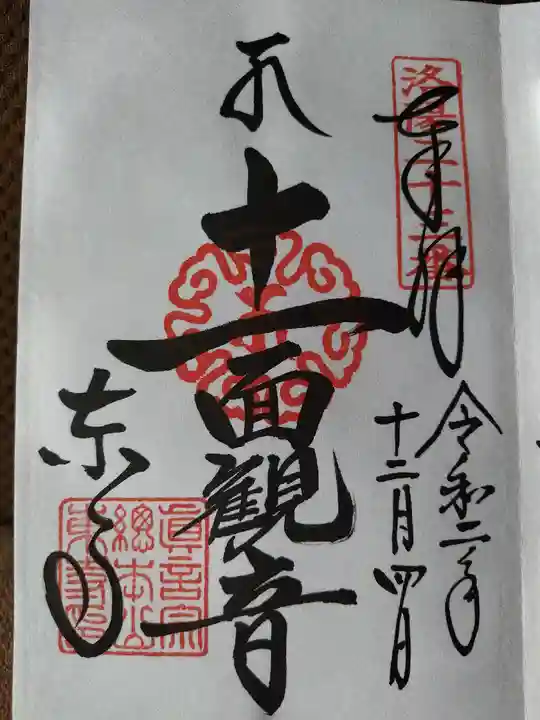 洛陽二十三番
奉拝
令和二年
十二月四日
十一面觀音
東寺
眞言宗
總本山
東寺印